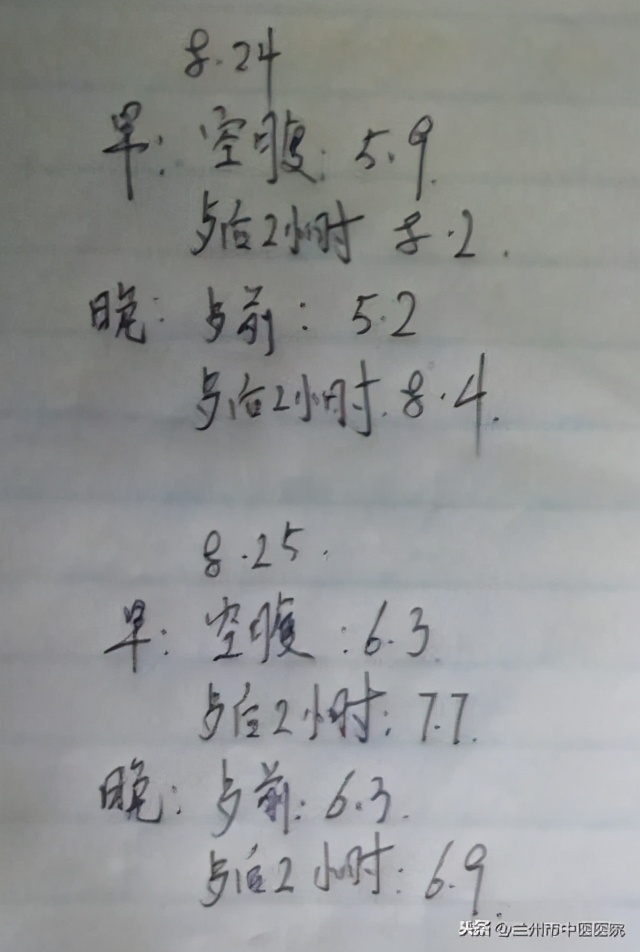 8.24
早: 空腹: 5.9.
歺后2小时 8.2.
晚: 歺前: 5.2
歺后2小时. 8.4.
8.25.
早: 空腹: 6.3.
歺后2小时: 7.7.
晚: 歺前: 6.3.
歺后2小时: 6.9.
头条 @兰州市中医医院